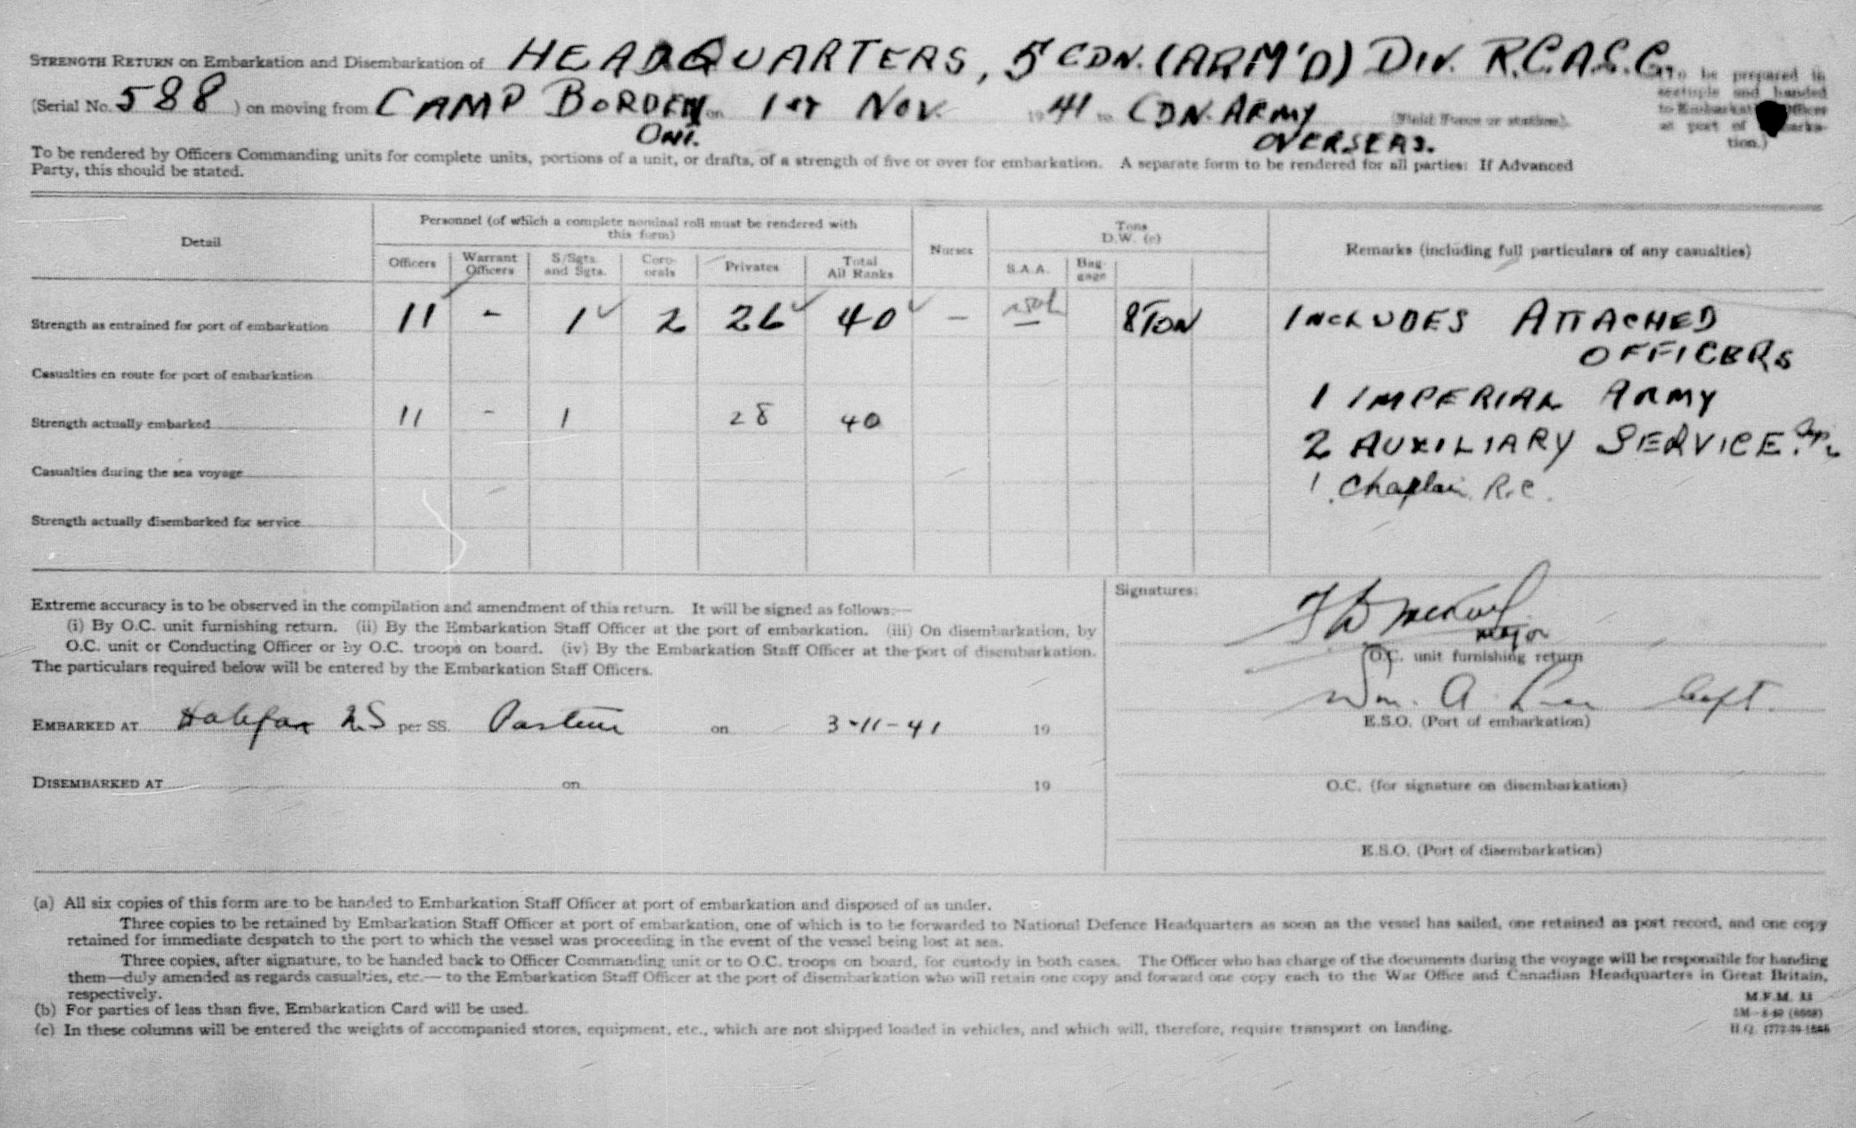 STRENGTH RETURN on Embarkation and Disembarkation of HEADQUARTERS, 5 CDN. (ARM'D) DIV. R.C.A.S.C.
(To be prepared in
sextuple and handed
to Embarkation Officer
at port of Embarka-
tion.)
(Serial No. 588 ) on moving from CAMP BORDEN on 1st Nov. 1941 to CDN. ARMY (Field Force or station).
ONT. OVERSEAS.
To be rendered by Officers Commanding units for complete units, portions of a unit, or drafts, of a strength of five or over for embarkation. A separate form to be rendered for all parties: If Advanced
Party, this should be stated.
Detail
Personnel (of which a complete nominal roll must be rendered with
this form)
Nurses
Tons
D.W. (c)
Remarks (including full particulars of any casualties)
Officers Warrant Officers S/Sgts. and Sgts. Corp-orals Privates Total All Ranks S.A.A. Bag-gage
Strength as entrained for port of embarkation 11 - 1 2 26 40 - 8 TON INCLUDES ATTACHED
OFFICERS
Casualties en route for port of embarkation
1 IMPERIAL ARMY
Strength actually embarked 11 - 1 28 40
2 AUXILIARY SERVICE.
Casualties during the sea voyage
1. Chaplain R.C.
Strength actually disembarked for service
Extreme accuracy is to be observed in the compilation and amendment of this return. It will be signed as follows:—
(i) By O.C. unit furnishing return. (ii) By the Embarkation Staff Officer at the port of embarkation. (iii) On disembarkation, by
O.C. unit or Conducting Officer or by O.C. troops on board. (iv) By the Embarkation Staff Officer at the port of disembarkation.
The particulars required below will be entered by the Embarkation Staff Officers.
Signatures:
Major
O.C. unit furnishing return
Wm. A. Capt.
E.S.O. (Port of embarkation)
EMBARKED AT Halifax NS per SS. Pasteur on 3-11-41 19
DISEMBARKED AT on 19
O.C. (for signature on disembarkation)
E.S.O. (Port of disembarkation)
(a) All six copies of this form are to be handed to Embarkation Staff Officer at port of embarkation and disposed of as under.
Three copies to be retained by Embarkation Staff Officer at port of embarkation, one of which is to be forwarded to National Defence Headquarters as soon as the vessel has sailed, one retained as port record, and one copy
retained for immediate despatch to the port to which the vessel was proceeding in the event of the vessel being lost at sea.
Three copies, after signature, to be handed back to Officer Commanding unit or to O.C. troops on board, for custody in both cases. The Officer who has charge of the documents during the voyage will be responsible for handing
them—duly amended as regards casualties, etc.— to the Embarkation Staff Officer at the port of disembarkation who will retain one copy and forward one copy each to the War Office and Canadian Headquarters in Great Britain,
respectively.
(b) For parties of less than five, Embarkation Card will be used.
(c) In these columns will be entered the weights of accompanied stores, equipment, etc., which are not shipped loaded in vehicles, and which will, therefore, require transport on landing.
M.F.M. 33
H.Q.